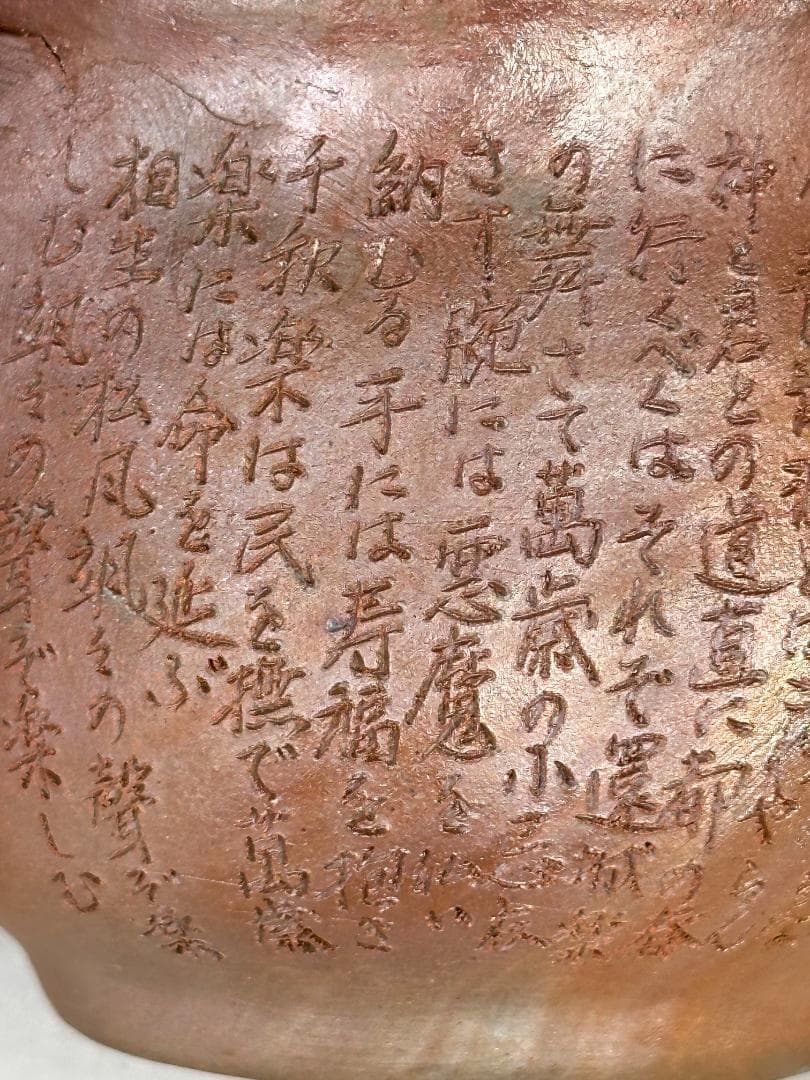 神と君との道直に都の春
に行くべくはそれぞ還城楽
の舞さて萬歳の小忌衣
さす腕には悪魔を払い
納むる手には寿福を抱き
千秋楽は民を撫で萬歳
楽には命を延ぶ
相生の松風颯々の聲ぞ楽
しむ颯々の聲ぞ楽しむ